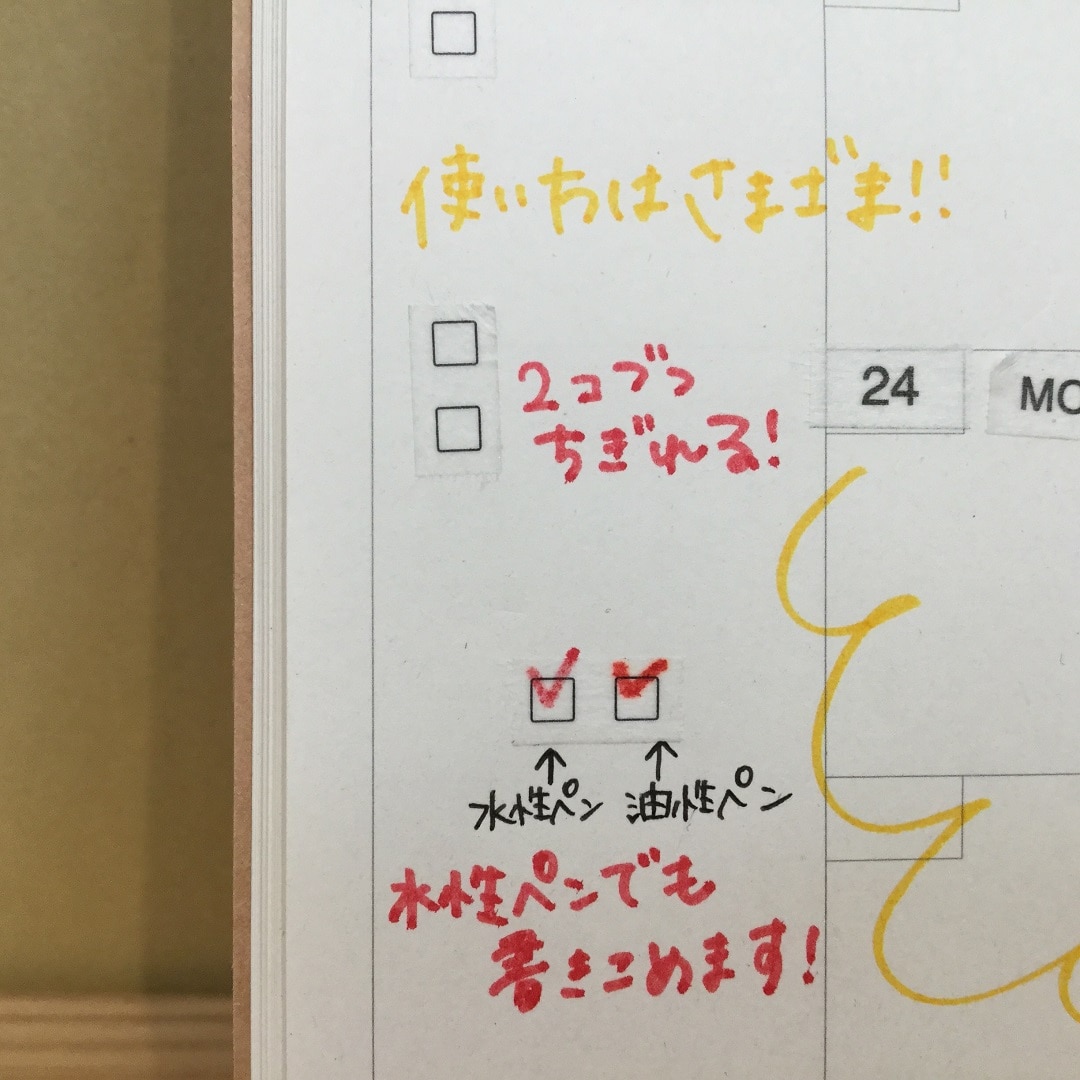 使い方はさまざま!!
2コづつ
ちぎれる!
24
MO
↑ ↑
水性ペン 油性ペン
水性ペンでも
書きこめます!